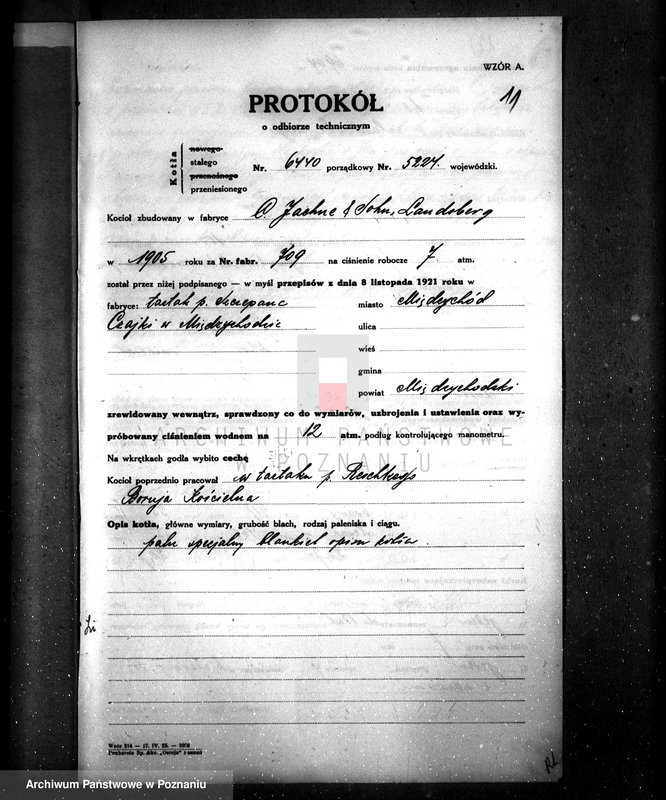 WZÓR A.
11
PROTOKÓŁ
o odbiorze technicznym
Kotła
nowego
stałego
przenośnego
przeniesionego
Nr. 6440 porządkowy Nr. 5227 wojewódzki.
Kocioł zbudowany w fabryce C. Jaehne & Sohn, Landsberg
w 1905 roku za Nr. fabr. 709 na ciśnienie robocze 7 atm.
został przez niżej podpisanego — w myśl przepisów z dnia 8 listopada 1921 roku w
fabryce: tartak p. Szczepana miasto Międzychód
Czajki w Międzychodzie ulica
wieś
gmina
powiat Międzychodzki
zrewidowany wewnątrz, sprawdzony co do wymiarów, uzbrojenia i ustawienia oraz wy-
próbowany ciśnieniem wodnem na 12 atm. podług kontrolującego manometru.
ARCHIWUM PAŃSTWOWE
W POZNANIU
Na wkrętkach godła wybito cechę
Kocioł poprzednio pracował w tartaku p.
Boruja Kościelna
Opis kotła, główne wymiary, grubość blach, rodzaj paleniska i ciągu.
patrz specjalny blankiet opisu kotła.
Wzór 214 — 17. IV. 25. — 1000
Piekarnia Sp. Akc. „Ostoja" Poznań
Archiwum Państwowe w Poznaniu